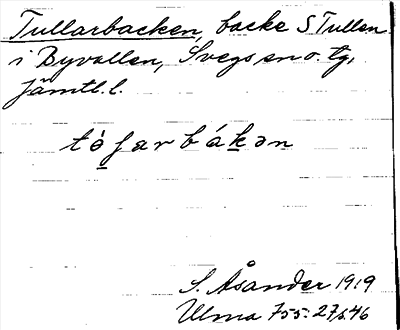 Tullarbacken, backe S Tullen
i Byvallen, Svegs sn o. tg,
Jämtl. l.
tòʃarbákən
S. Åsander 1919
Ulma 755: 27 s. 46